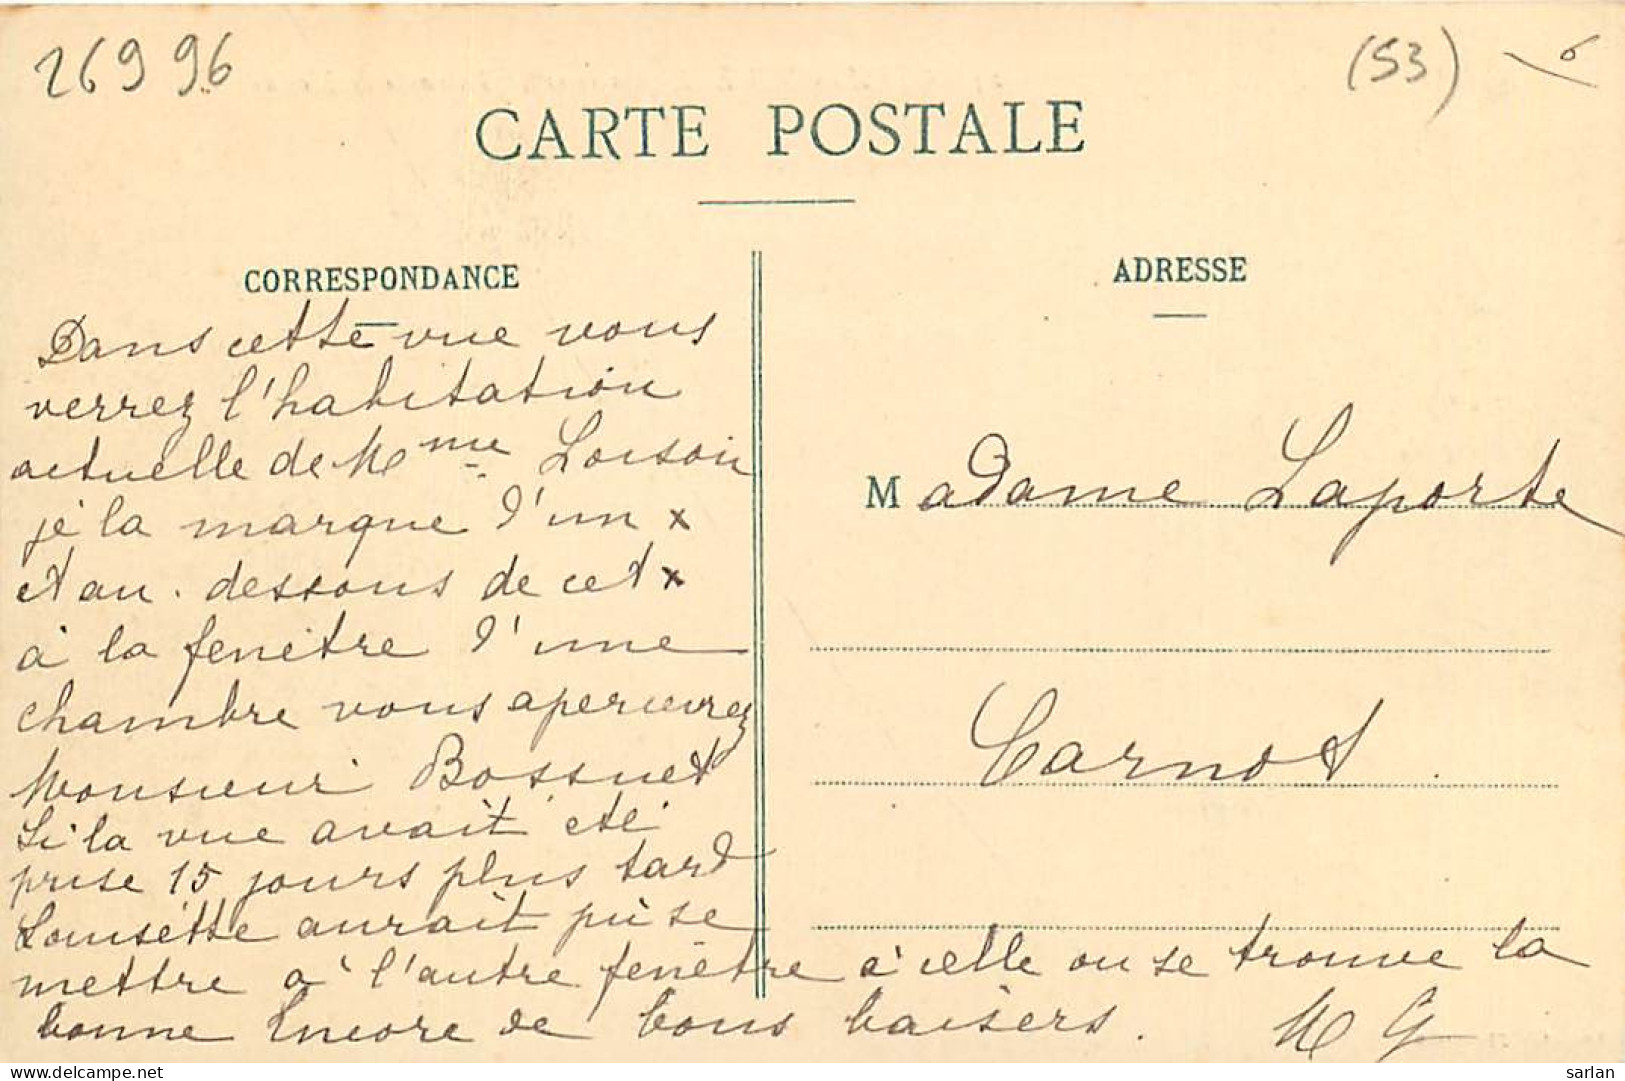 26996
(53)
CARTE POSTALE
CORRESPONDANCE
ADRESSE
Dans cette vue vous
verrez l'habitation
actuelle de Mme Loison
je la marque d'un x
et au dessous de cet x
à la fenêtre d'une
chambre vous apercevrez
Monsieur Bossuet
Si la vue avait été
prise 15 jours plus tard
Lousette aurait pu se
mettre à l'autre fenêtre à celle ou se trouve la
bonne Encore de bons baisers. M G
Madame Laporte
Carnot
sarlan